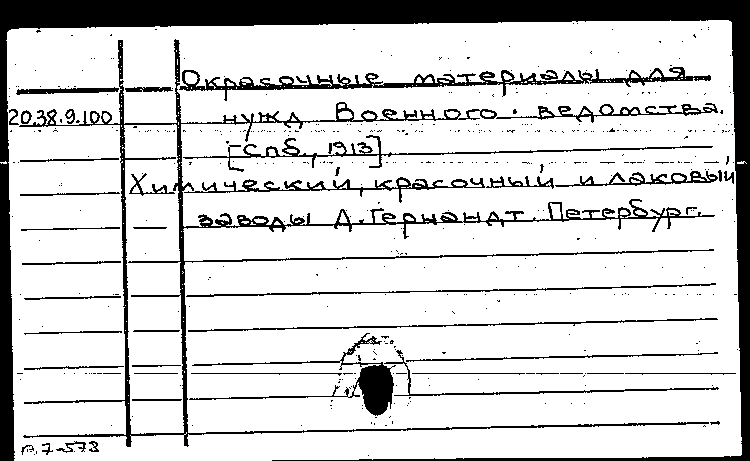 Окрасочные материалы для
2038.9.100 нужд Военного ведомства.
[Спб., 1913].
Химический, красочный и лаковый
заводы Д. Гернандт. Петербург.
7-578